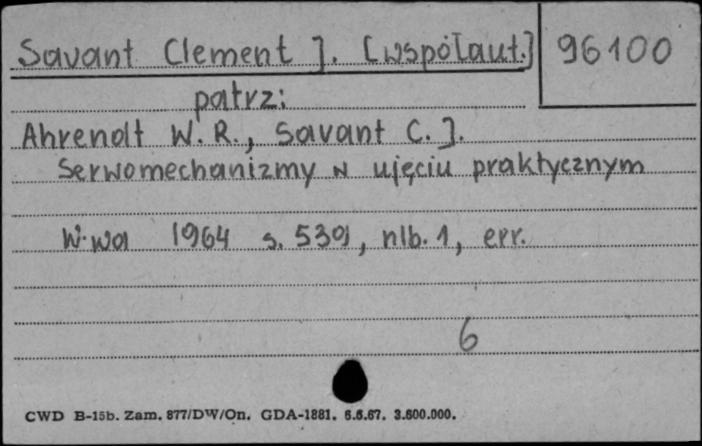 Savant Clement J. [współaut.] 96100
patrz:
Ahrendt W. R., Savant C. J.
Serwomechanizmy w ujęciu praktycznym
W-wa 1964 s. 539, nlb. 1, err.
6
CWD B-15b. Zam. 877/DW/On. GDA-1881. 6.6.67. 3.600.000.